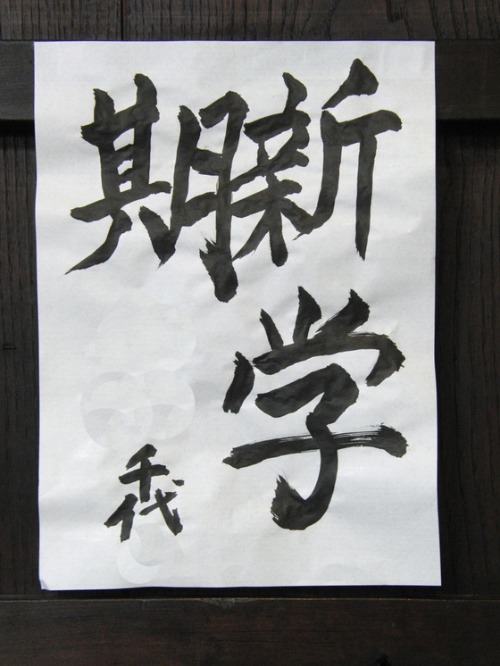 新学
期
千代